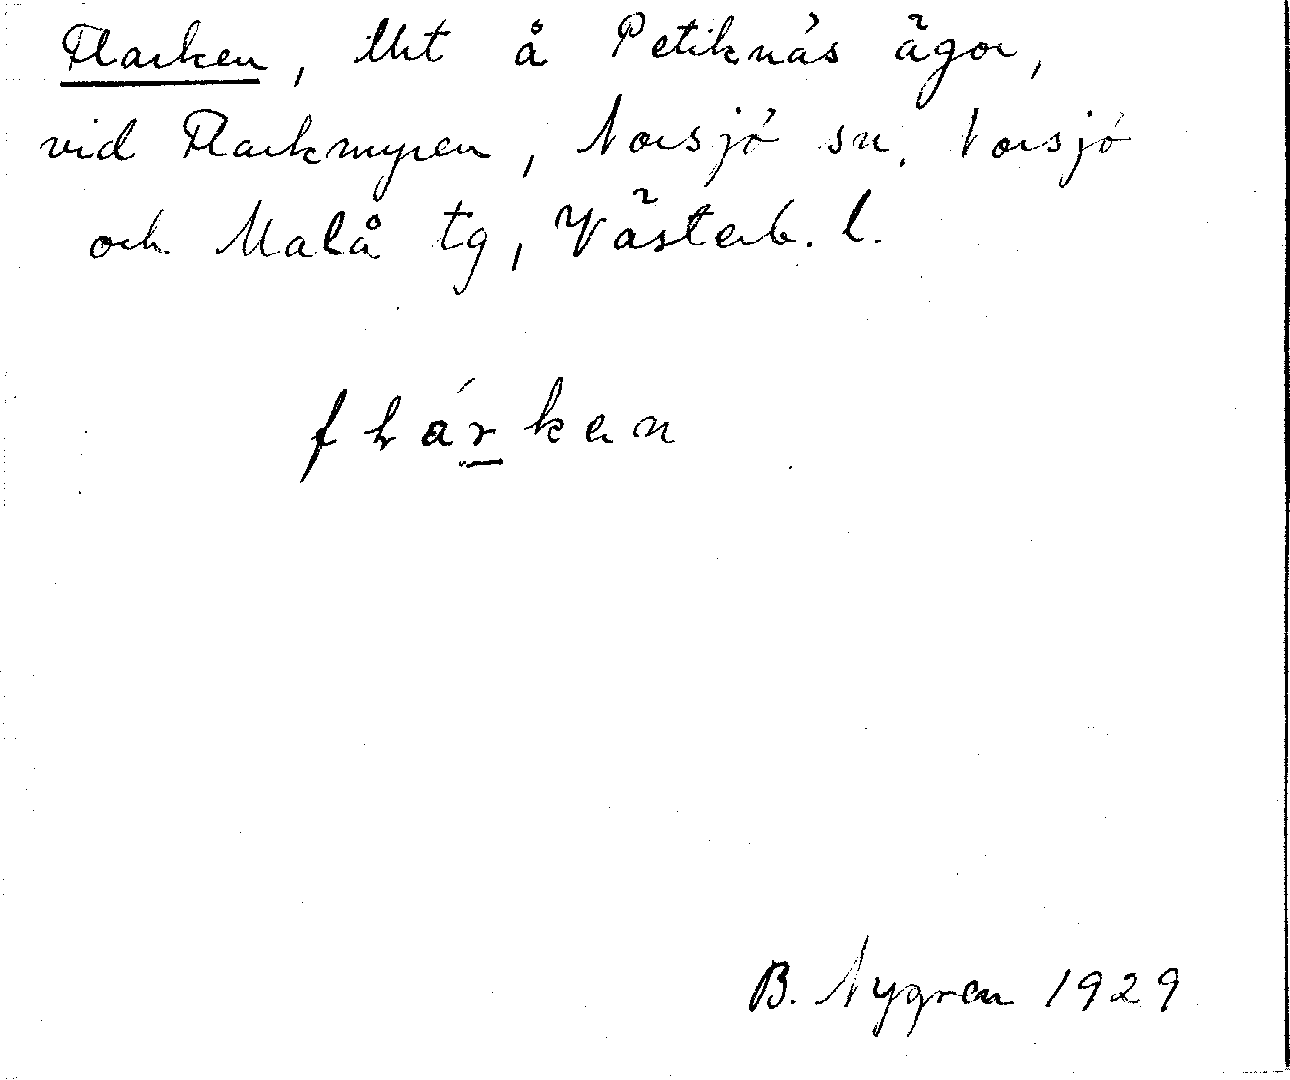 Flarken, lht å Petiknäs ägor,
vid Flarkmyren, Norsjö sn. Norsjö
och Malå tg, Västerb. l.
flárkan
B. Nygren 1929